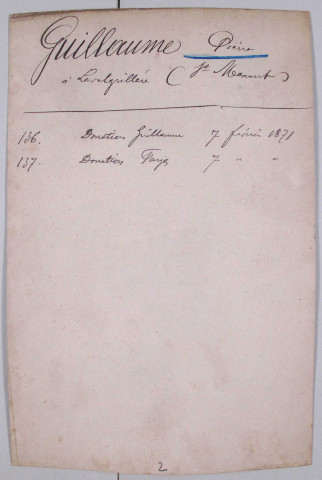 Guillaume Pierre
à (St Mesmont)
136. Donation Guillaume 7 février 1871
137. Donation Fayas 7 " "
2